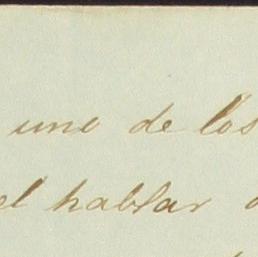 uno de los
el hablar